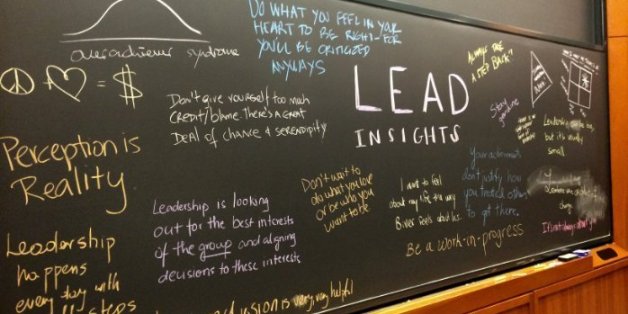 overachiever syndrome
DO WHAT YOU FEEL IN YOUR
HEART TO BE RIGHT-FOR
YOU'LL BE CRITICIZED
ANYWAYS
ALWAYS TAKE
A STEP BACK
+ = $
Don't give yourself too much
Credit/blame. there's a great
Deal of chance & serendipity
LEAD
INSIGHTS
Stay
genuine
Leadership
but it's usually
small
Perception is
Reality
Leadership is looking
out for the best interests
of the group and aligning
decisions to these interests
Don't wait to
do what you love
or be who you
want to be.
I want to feel
about my life the way
Biver feels about his.
Your achievements
don't justify how
you treated others
to get there.
Be a work-in-progress
Leaders are
change
It's not always about you
Leadership
happens
every day with
steps
is very, very helpful